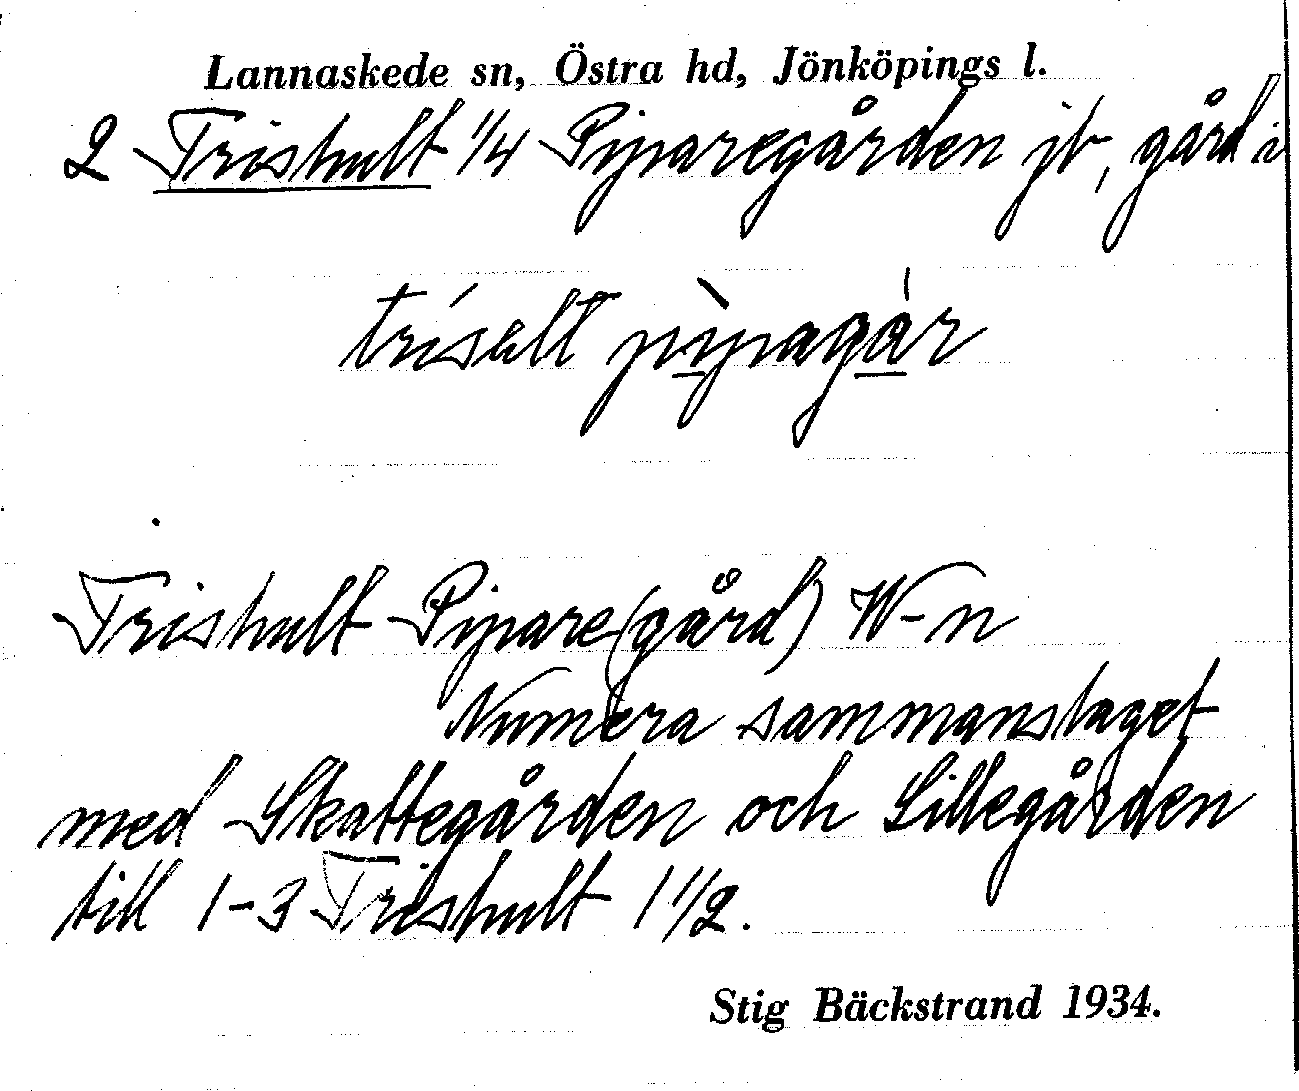 Lannaskede sn, Östra hd, Jönköpings l.
2 Trishult 1/4 Piparegården jb, gård i
trísult pìpagár
Trishult Pipare(gård) W-n
Numera sammanslaget
med Skattegården och Lillegården
till 1-3 Trishult 1 1/2.
Stig Bäckstrand 1934.